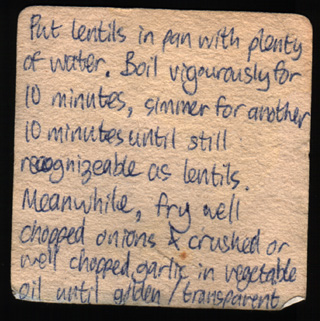 Put lentils in pan with plenty
of water. Boil vigourously for
10 minutes, simmer for another
10 minutes until still
recognizeable as lentils.
Meanwhile, fry well
chopped onions & crushed or
well chopped garlic in vegetable
oil until golden / transparent